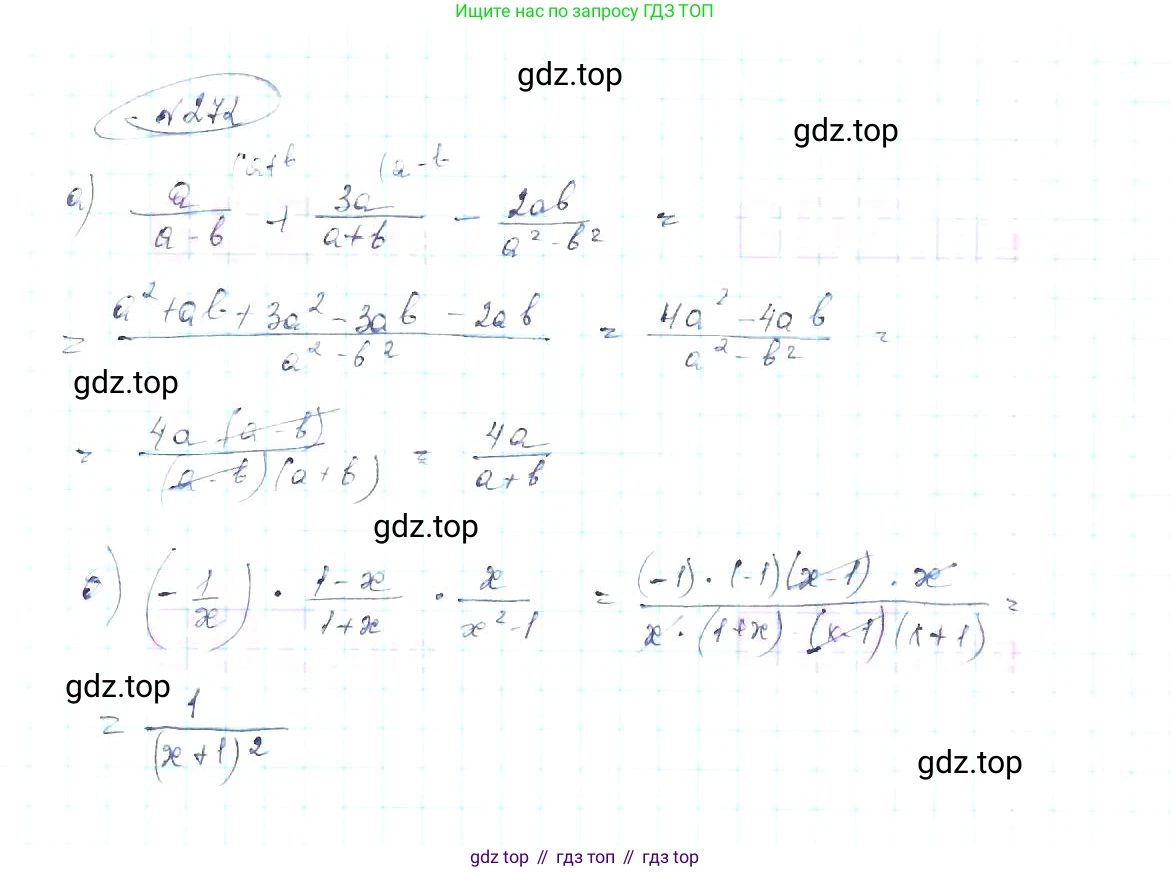 Ищите нас по запросу ГДЗ ТОП
gdz.top
№272
gdz.top
(a+b (a-b
а) a/(a-b) + 3a/(a+b) - 2ab/(a²-b²) =
= (a²+ab+3a²-3ab-2ab)/(a²-b²) = (4a²-4ab)/(a²-b²) =
gdz.top
= 4a(a-b)/((a-b)(a+b)) = 4a/(a+b)
gdz.top
б) (-1/x) · (1-x)/(1+x) · x/(x²-1) = ((-1)·(-1)(x-1)·x)/(x·(1+x)(x-1)(x+1)) =
gdz.top
= 1/(x+1)²
gdz.top
gdz top // гдз топ // гдз top